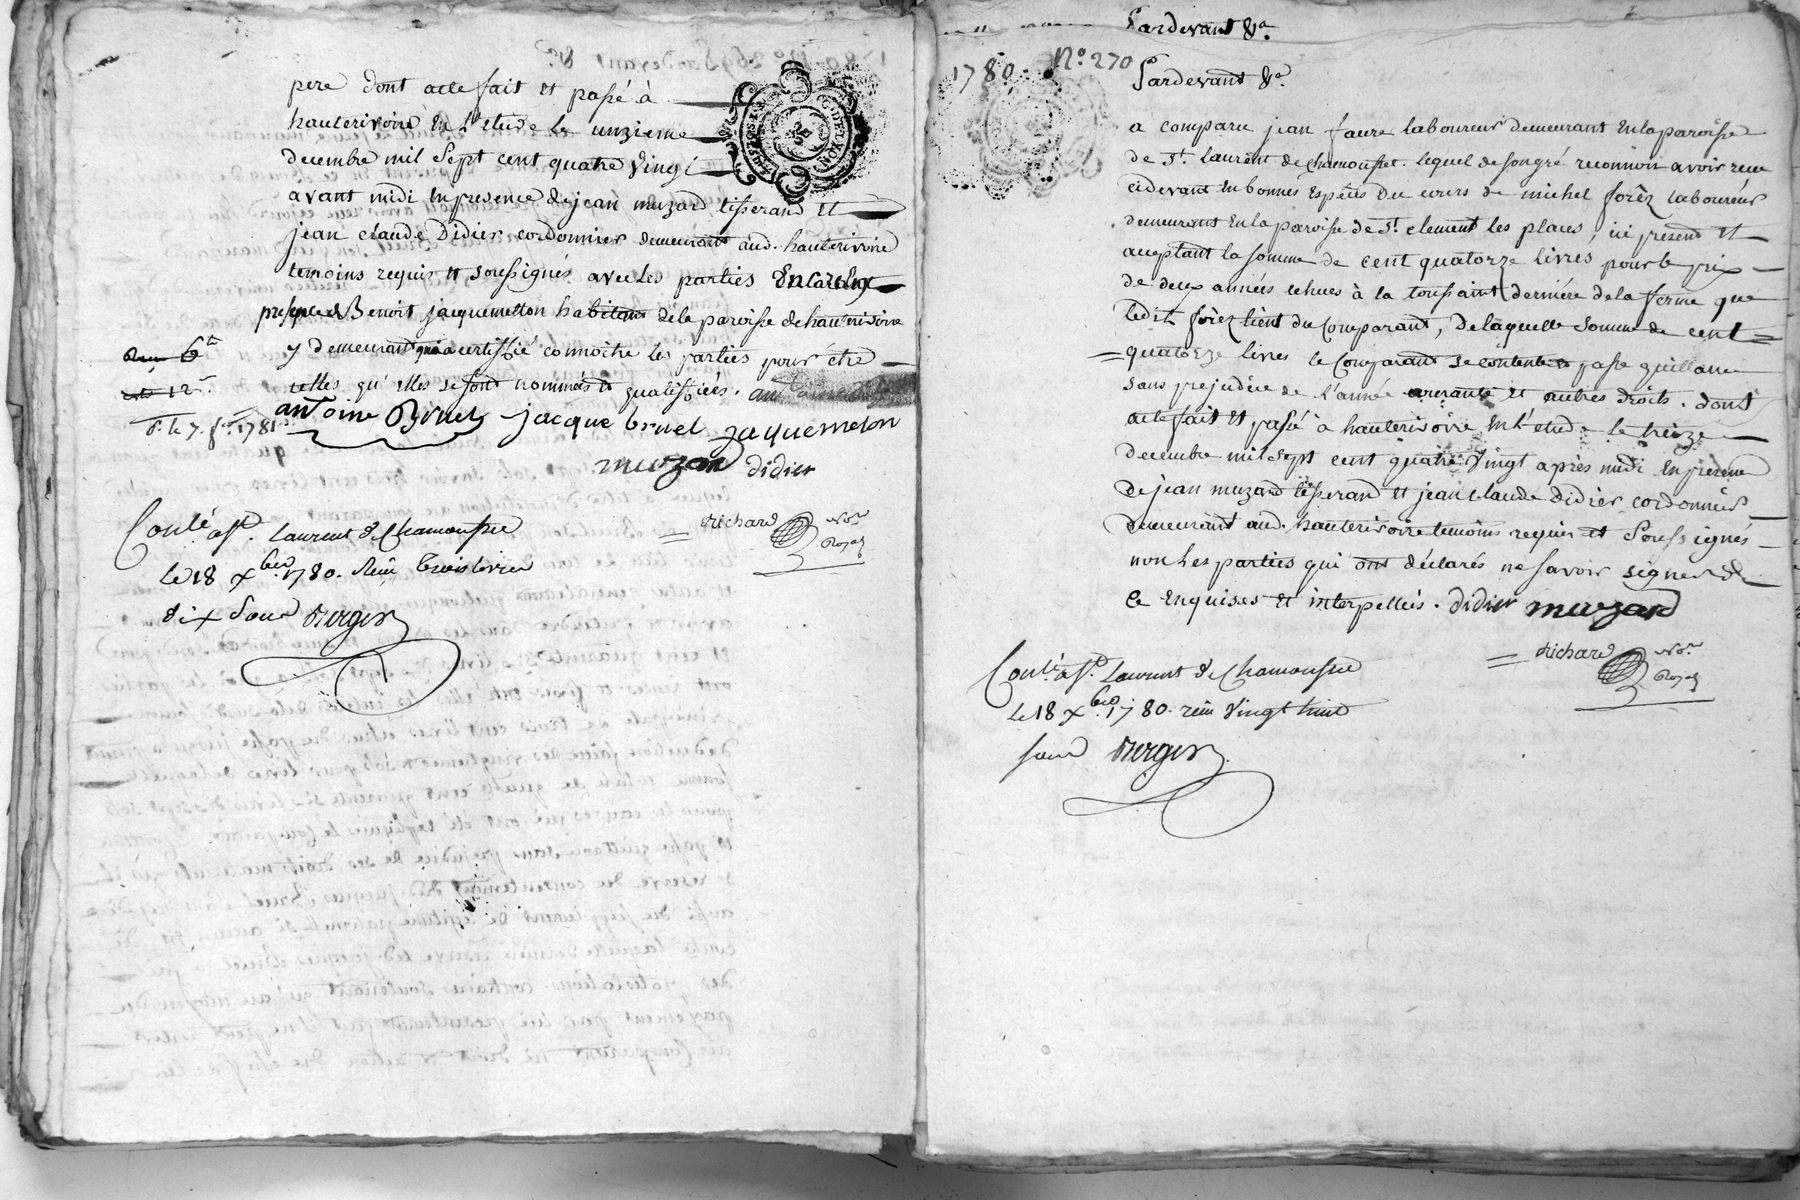 pere dont acte fait et passé à
hauterivoire En l'etude le unzieme
decembre mil Sept cent quatre vingt
avant midi En presence de jean muzard tisserand Et
jean claude Didier cordonnier demeurant aud. hauterivoire
temoins requis et soussignés avec les parties En
presence de Benoit jacquemetton habitant de la paroisse de hauterivoire
y demeurant qui a certiffié connoitre les parties pour être
telles qu'elles se sont nommées et qualiffiées.
Reçu 6tt
12s
1781
antoine Bruel jacque bruel jaquemeton
muzard didier
richard Nore Royal
Conlé à St. Laurent de Chamousset
le 18 xbre 1780. Reçu trois livres
dix sous Berger
Pardevant &a.
1780. No. 270
Pardevant &a.
a comparu jean faure laboureur demeurant En la paroisse
de St. laurent de chamousset. lequel de son gré reconnoit avoir reçu
cidevant En bonnes Especes Du cours de michel forêz laboureur
demeurant En la paroisse de St. clement les places, ici present Et
acceptant la somme de cent quatorze livres pour le prix
de deux années echues à la toussaint derniére de la ferme que
ledit forêz tient du Comparant, De laquelle Somme de cent
quatorze livres le Comparant se contente et passe quittance
sans prejudice de l'année courante et autres droits. dont
acte fait Et passé à hauterivoire En l'etude le treize
Decembre mil Sept cent quatre Vingt après midi En presence
De jean muzard tisserand et jean claude didier cordonnier
demeurant aud. hauterivoire temoins requis et Soussignés
non les parties qui ont déclarés ne savoir signer de
ce Enquises Et interpellées. didier muzard
richard Nore Royal
Conlé à St. Laurent de Chamousset
le 18 xbre 1780. reçu Vingt huit
sous Berger